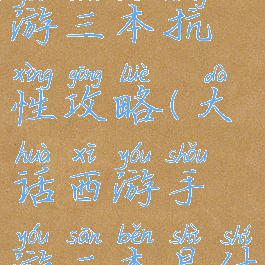 游三本抗
xìng gōng lüè dà
性攻略(大
huà xī yóu shǒu
话西游手
yóu sān běn shì shí
游三本是什